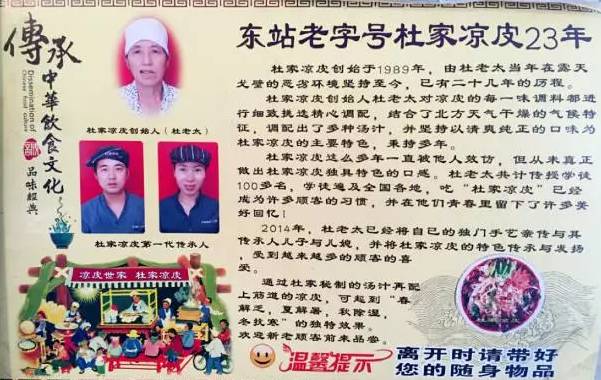 傳承
中華飲食文化
Dissemination of
Chinese food culture
品味經典
东站老字号杜家凉皮23年
杜家凉皮创始于1989年，由杜老太当年在露天
戈壁的恶劣环境坚持至今，已有二十几年的历程。
杜家凉皮创始人杜老太对凉皮的每一味调料都进
行细致挑选精心调配，结合了北方天气干燥的气候特
征，调配出了多种汤汁，并坚持以清爽纯正的口味为
杜家凉皮的主要特色，秉持多年。
杜家凉皮这么多年一直被他人效仿，但从未真正
做出杜家凉皮独具特色的口感。杜老太共计传授学徒
100多名，学徒遍及全国各地，吃“杜家凉皮”已经
成为许多顾客的习惯，并在他们青春里留下了许多美
好回忆！
2014年，杜老太已经将自己的独门手艺亲传与其
传承人儿子与儿媳，并将杜家凉皮的特色传承与发扬
，受到越来越多的顾客的喜
爱。
通过杜家秘制的汤汁再配
上筋道的凉皮，可起到“春
解乏，夏解暑，秋除湿，
冬扰寒”的独特效果。
欢迎新老顾客前来品尝。
杜家凉皮创始人（杜老太）
杜家凉皮第一代传承人
凉皮世家 杜家凉皮
温馨提示
离开时请带好
您的随身物品